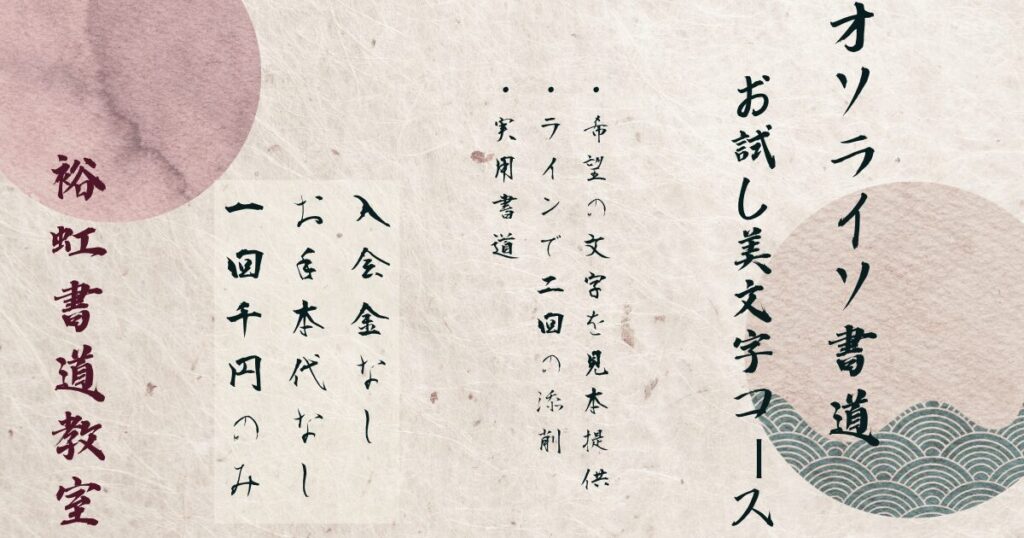 オンライン書道
お試し美文字コース
・希望の文字を見本提供
・ラインで二回の添削
・実用書道
入会金なし
お手本代なし
一回千円のみ
裕虹書道教室